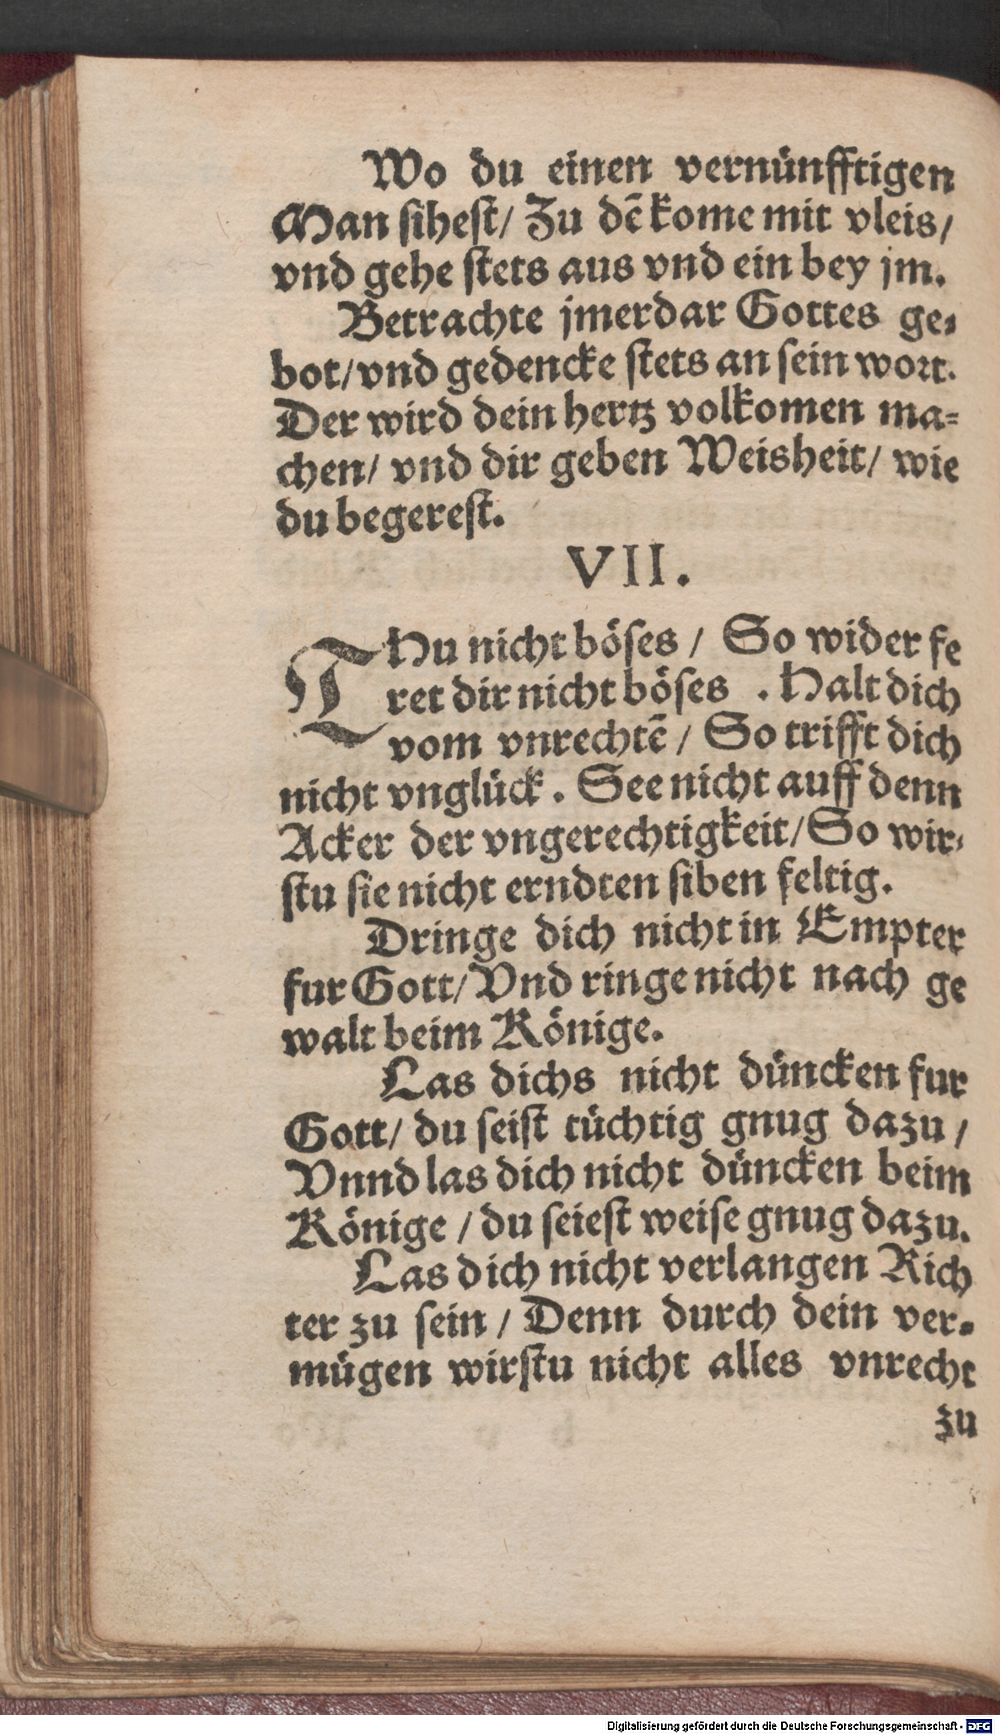 Wo du einen vernünfftigen
Man sihest/ Zu dẽ kome mit vleis/
vnd gehe stets aus vnd ein bey jm.
Betrachte jmerdar Gottes ge-
bot/ vnd gedencke stets an sein wort.
Der wird dein hertz volkomen ma-
chen/ vnd dir geben Weisheit/ wie
du begerest.
VII.
THu nicht böses / So wider fe
ret dir nicht böses . Halt dich
vom vnrechtẽ / So trifft dich
nicht vnglück . See nicht auff denn
Acker der vngerechtigkeit/ So wir-
stu sie nicht erndten siben feltig.
Dringe dich nicht in Empter
fur Gott/ Vnd ringe nicht nach ge
walt beim Könige.
Las dichs nicht düncken fur
Gott/ du seist tüchtig gnug dazu /
Vnnd las dich nicht düncken beim
Könige / du seiest weise gnug dazu.
Las dich nicht verlangen Rich
ter zu sein / Denn durch dein ver-
mügen wirstu nicht alles vnrecht
zu
Digitalisierung gefördert durch die Deutsche Forschungsgemeinschaft - DFG